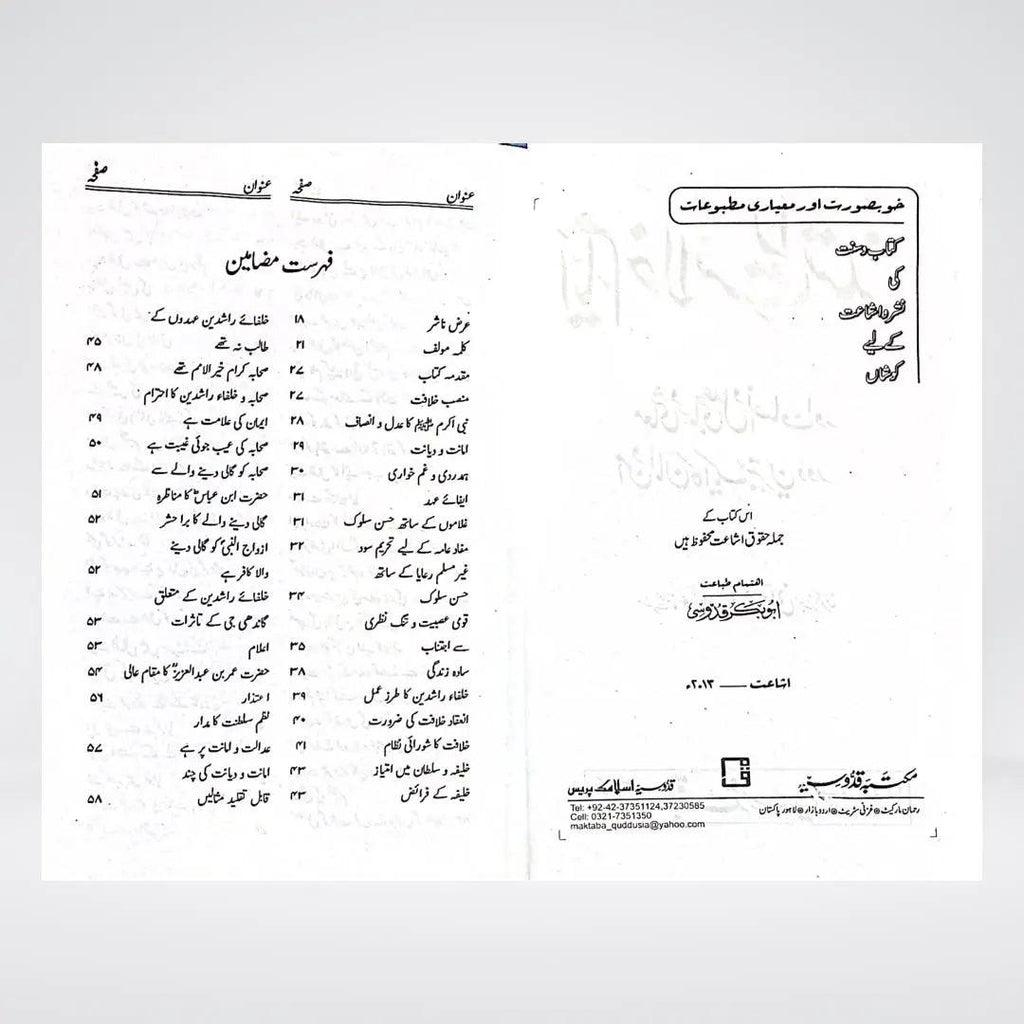 خوبصورت اور معیاری مطبوعات
کتاب و سنت
کی
نشر و اشاعت
کے لیے
کوشاں
اس کتاب کے
جملہ حقوق اشاعت محفوظ ہیں
اهتمام طباعت
ابوبکر قدوسی
اشاعت —— ۲۰۱۳ء
مکتبہ قدوسیہ
قدوسیہ اسلامک پریس
رحمان مارکیٹ ● غزنی سٹریٹ ● اردو بازار ● لاہور پاکستان
Tel: +92-42-37351124,37230585
Cell: 0321-7351350
maktaba_quddusia@yahoo.com
عنوان صفحہ
عنوان صفحہ
فہرست مضامین
عرض ناشر ۱۸
کلمہ مولف ۲۱
مقدمہ کتاب ۲۷
منصب خلافت ۲۷
نبی اکرم ﷺ کا عدل و انصاف ۲۸
امانت و دیانت ۲۹
ہمدردی و غم خواری ۳۰
ایفائے عہد ۳۱
غلاموں کے ساتھ حسن سلوک ۳۱
مفاد عامہ کے لیے تحریم سود ۳۲
غیر مسلم رعایا کے ساتھ
حسن سلوک ۳۴
قومی عصبیت و تنگ نظری
سے اجتناب ۳۵
سادہ زندگی ۳۸
خلفاء راشدین کا طرز عمل ۳۹
انعقاد خلافت کی ضرورت ۴۰
خلافت کا شورائی نظام ۴۱
خلیفہ و سلطان میں امتیاز ۴۳
خلیفہ کے فرائض ۴۳
خلفائے راشدین عہدوں کے
طالب نہ تھے ۴۵
صحابہ کرام خیر الامم تھے ۴۸
صحابہ و خلفاء راشدین کا احترام
ایمان کی علامت ہے ۴۹
صحابہ کی عیب جوئی غیبت ہے ۵۰
صحابہ کو گالی دینے والے سے
حضرت ابن عباسؓ کا مناظرہ ۵۱
گالی دینے والے کا برا حشر ۵۲
ازواج النبیؐ کو گالی دینے
والا کافر ہے ۵۲
خلفائے راشدین کے متعلق
گاندھی جی کے تاثرات ۵۳
اعلام ۵۳
حضرت عمر بن عبدالعزیزؒ کا مقام عالی ۵۴
اعتذار ۵۶
نظم سلطنت کا مدار
عدالت و امانت پر ہے ۵۷
امانت و دیانت کی چند
قابل تقلید مثالیں ۵۸